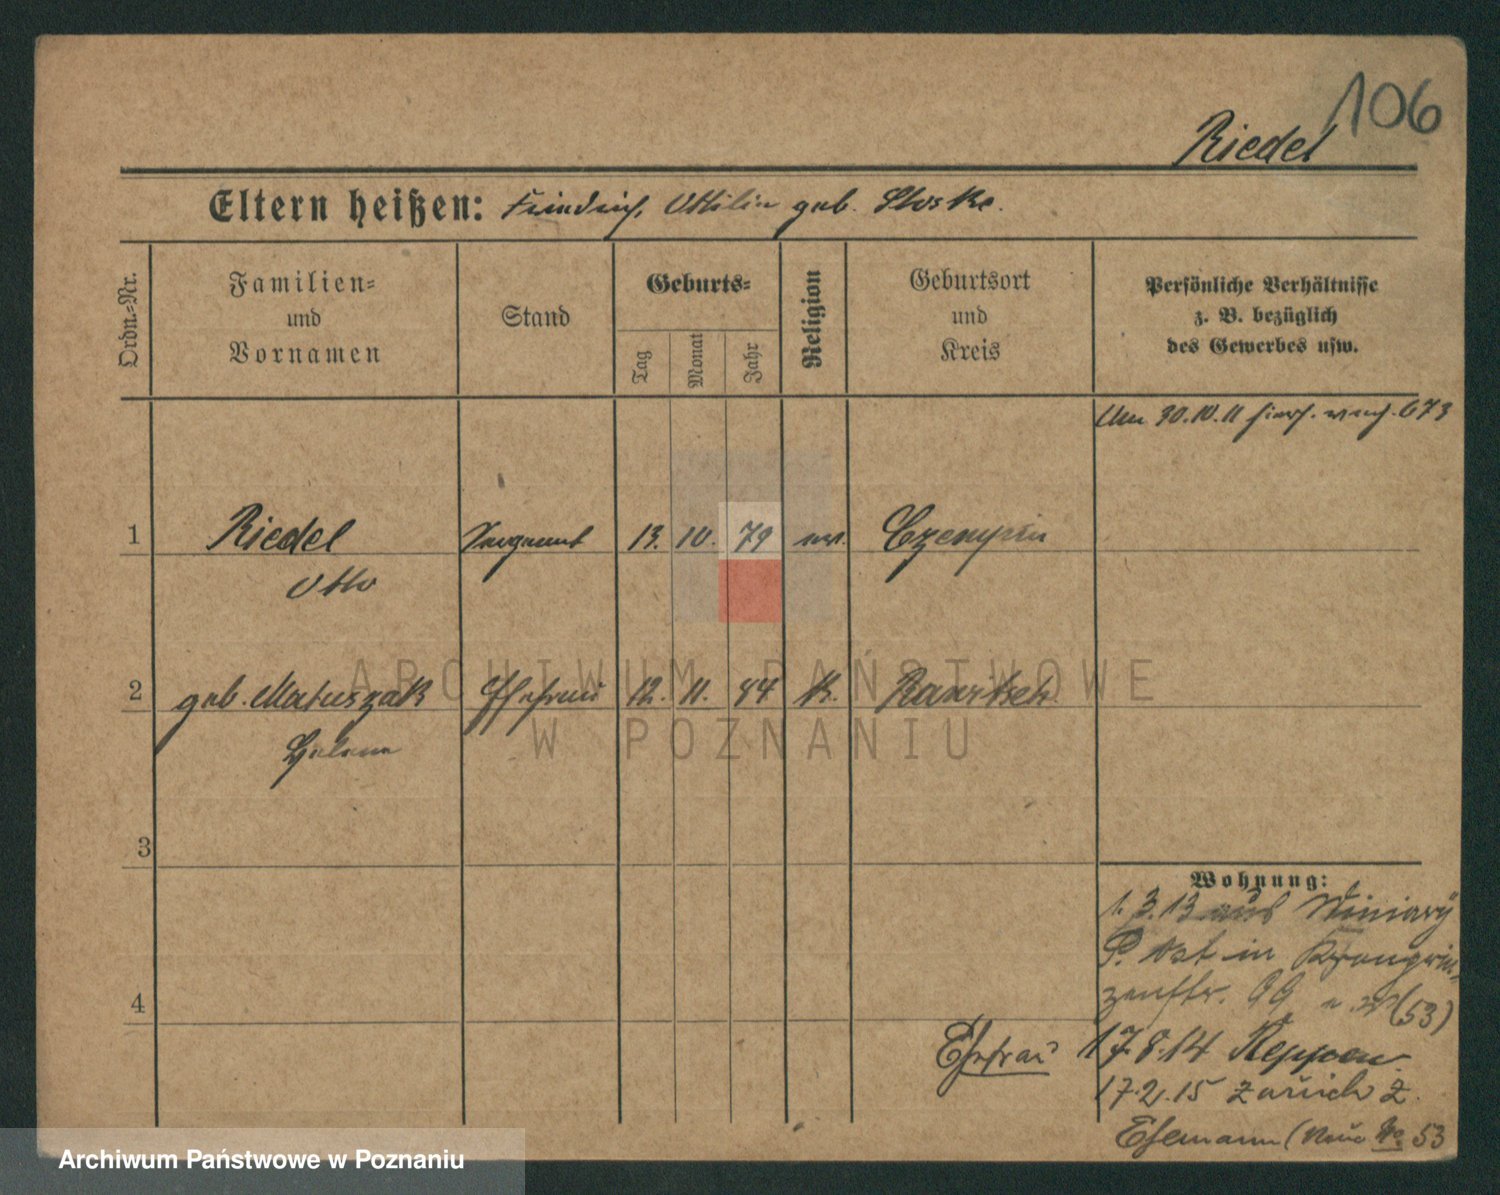 106
Riedel
Eltern heißen: Friedrich, Ottilie geb. Stoske.
Ordn.-Nr.
Familien-
und
Vornamen
Stand
Geburts-
Tag
Monat
Jahr
Religion
Geburtsort
und
Kreis
Persönliche Verhältnisse
z. B. bezüglich
des Gewerbes usw.
30.10.11 673
1 Riedel Sergeant 13. 10. 79 ev. Czempin
Otto
2 geb. Matuszak Ehefrau 12. 11. k.
Helene
3
4
Wohnung:
1.3.13 aus Winiary
P. Ost in Kronprin-
zenstr. 99 (53)
Ehefrau 17.8.14 Reppen.
17.2.15 zurück
Ehemann (Neue No 53
ARCHIWUM PAŃSTWOWE
W POZNANIU
Archiwum Państwowe w Poznaniu